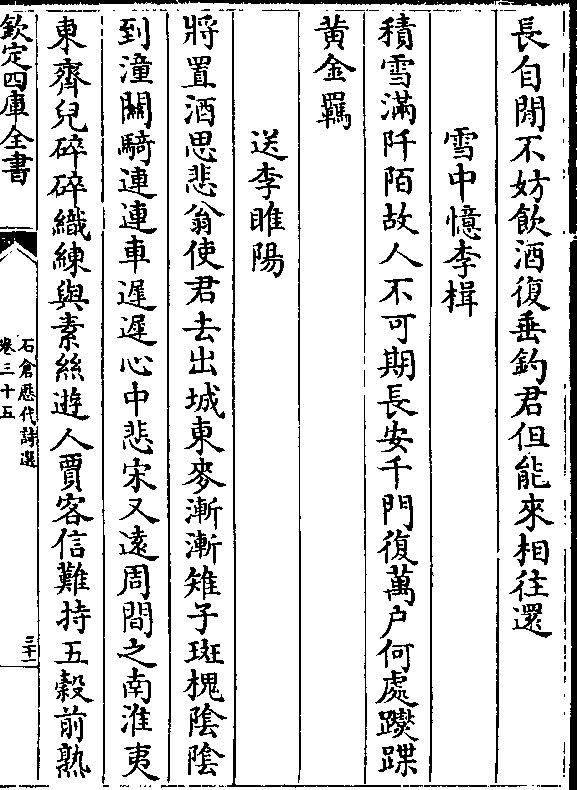 長自閒不妨飲酒復垂釣君但能來相往還
雪中憶李楫
積雪滿阡陌故人不可期長安千門復萬户何處躞蹀
黄金羈
送李睢陽
將置酒思悲翁使君去出城東麥漸漸雉子斑槐陰陰
到潼關騎連連車遲遲心中悲宋又遠周間之南淮夷
東齊兒碎碎織練與素絲遊人賈客信難持五糓前熟
欽定四庫全書
石倉歷代詩選
卷三十五
三十二